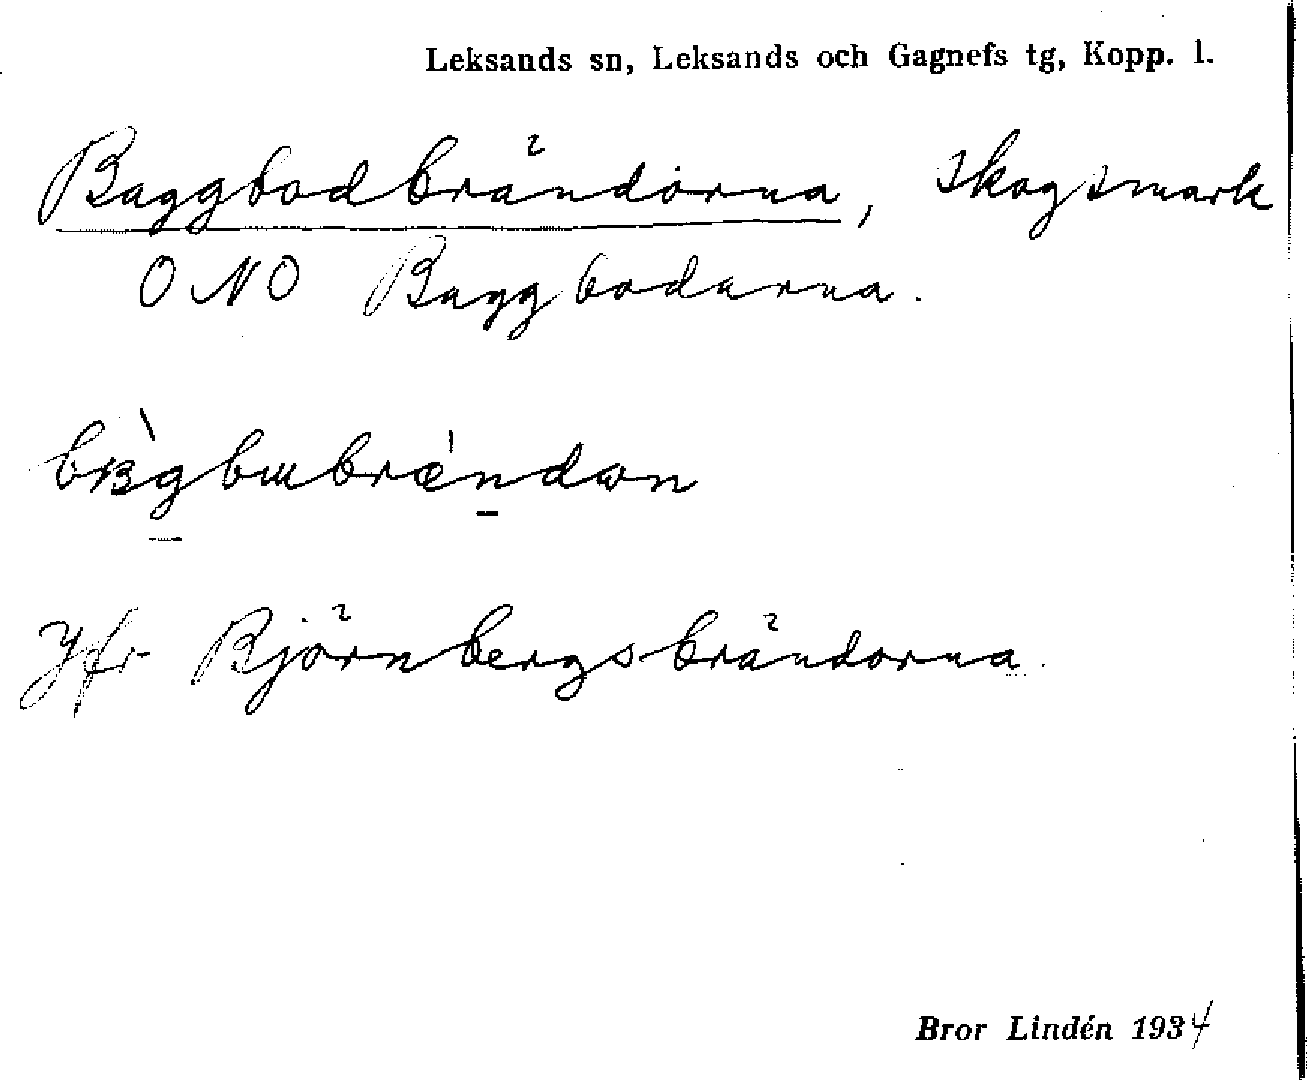 Leksands sn, Leksands och Gagnefs tg, Kopp. l.
Baggbodbrändorna, skogsmark
ONO Baggbodarna.
Jfr Björnbergsbrändorna.
Bror Lindén 1934